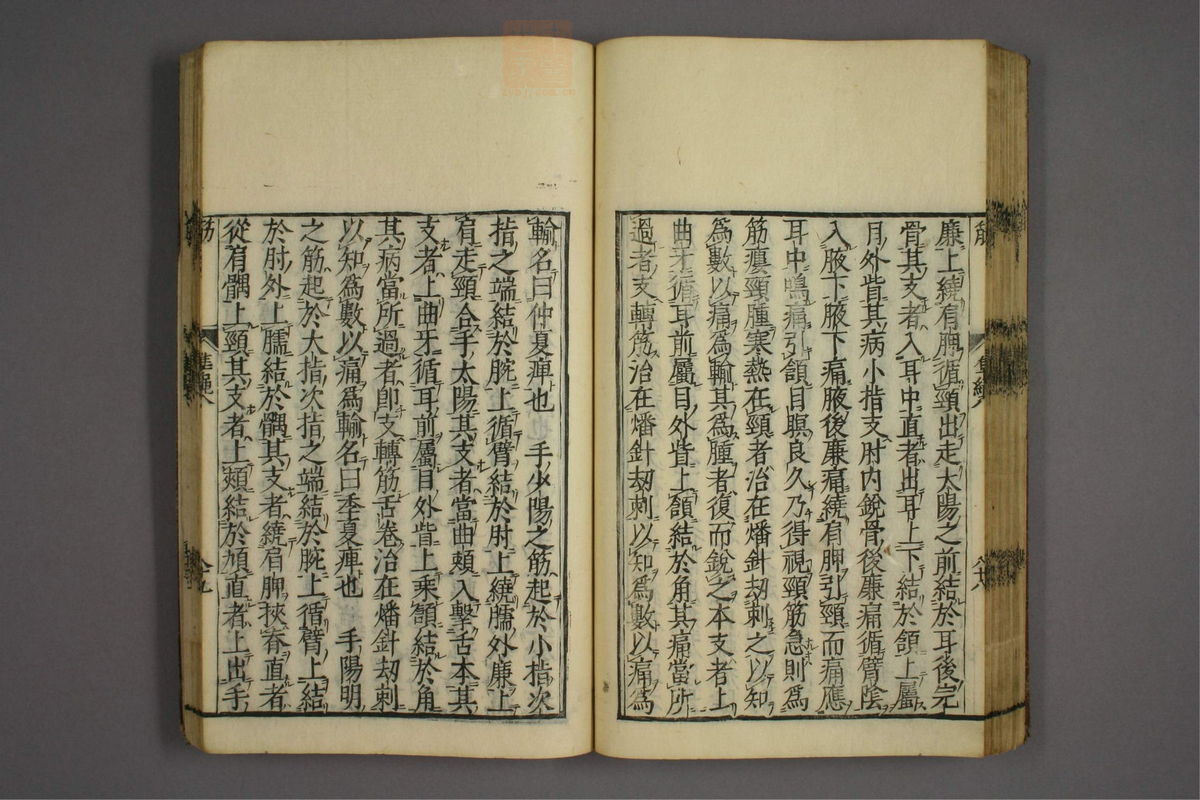 廉上繞肩胛循頸出走太陽之前結於耳後完
骨其支者入耳中直者出耳上下結於頷上屬
目外眥其病小指支肘內銳骨後廉痛循臂陰
入腋下腋下痛腋後廉痛繞肩胛引頸而痛應
耳中鳴痛引頷目瞑良久乃得視頸筋急則為
筋瘻頸腫寒熱在頸者治在燔針劫刺之以知
為數以痛為輸其為腫者復而銳之本支者上
曲牙循耳前屬目外眥上頷結於角其痛當所
過者支轉筋治在燔針劫刺以知為數以痛為
輸名曰仲夏痺也 手少陽之筋起於小指次
指之端結於腕上循臂結於肘上繞臑外廉上
肩走頸合手太陽其支者當曲頰入擊舌本其
支者上曲牙循耳前屬目外眥上乘頷結於角
其病當所過者即支轉筋舌卷治在燔針劫刺
以知為數以痛為輸名曰季夏痺也 手陽明
之筋起於大指次指之端結於腕上循臂上結
於肘外上臑結於髃其支者繞肩胛挾脊直者
從肩髃上頸其支者上頰結於頄直者上出手